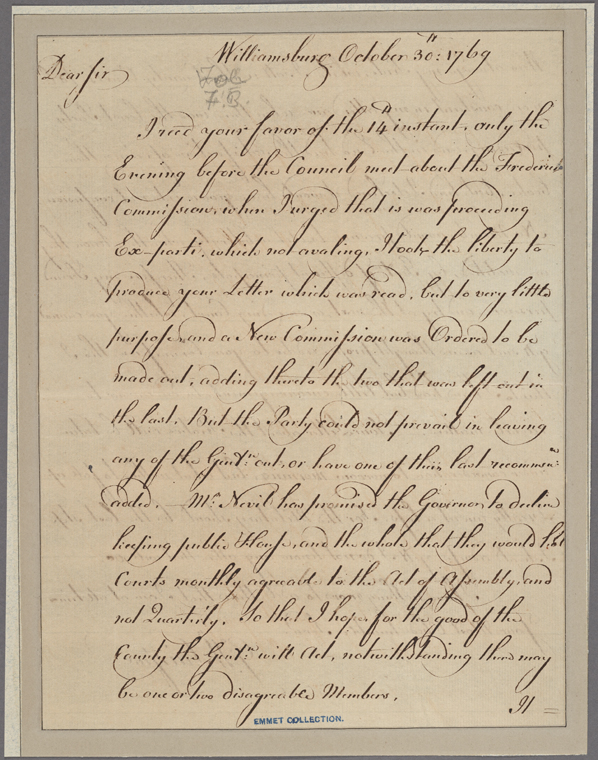 Williamsburg October 30th: 1769
Dear Sir
I recd your favor of the 14th instant, only the
Evening before the Council met about the Frederick
Commission, when I urged that is was proceeding
Ex-parti, which not avaling, I took the liberty to
produce your Letter which was read, but to very little
purpose, and a New Commission was Ordered to be
made out, adding thereto the two that was left out in
the last. But the Party could not prevail in leaving
any of the Gentn: out, or have one of their last recomme:
added. Mr. Nevil has promised the Governor to decline
keeping public House, and the whole that they would hold
Courts monthly agreable to the Act of Assembly, and
not Quarterly. So that I hope for the good of the
County the Gentn: will Act, notwithstanding there may
be one or two disagreable Members.
It =
EMMET COLLECTION.